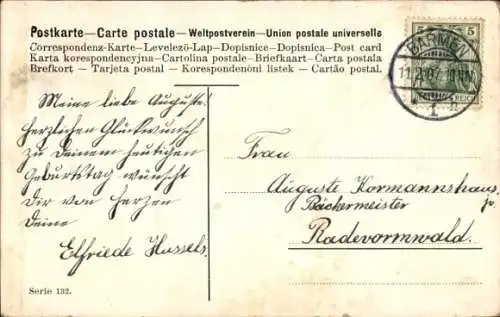 Postkarte — Carte postale — Weltpostverein — Union postale universelle
Correspondenz-Karte — Levelező-Lap — Dopisnice — Dopisnica — Post card
Karta korespondencyjna — Cartolina postale — Briefkaart — Carta postala
Brefkort — Tarjeta postal — Korespondenčni listek — Cartão postal.
5 5
BARMEN
11.2.07
1
REICH
Meine liebe Auguste!
Herzlichen Glückwunsch
zu Deinem heutigen
Geburtstag wünscht
Dir von Herzen
Deine
Elfriede Hussels.
Frau
Auguste Kormannshaus
Bäckermeister
Radevormwald.
Serie 132.